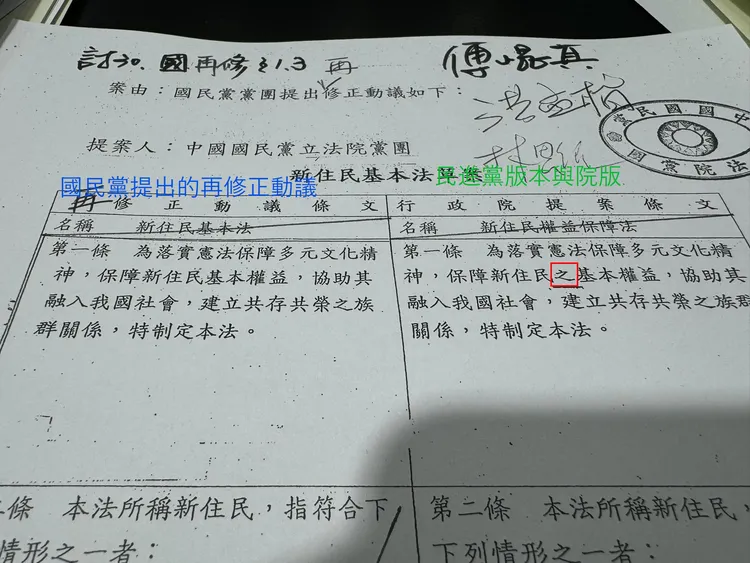 討30. 國再修之1.3 再 傅崐萁
案由：國民黨黨團提出修正動議如下：
洪孟楷
提案人：中國國民黨立法院黨團
新住民基本法草案
國民黨提出的再修正動議
民進黨版本與院版
再修正動議條文 行政院提案條文
名稱 新住民基本法 名稱 新住民權益保障法
第一條 為落實憲法保障多元文化精
神，保障新住民基本權益，協助其
融入我國社會，建立共存共榮之族
群關係，特制定本法。
第一條 為落實憲法保障多元文化精
神，保障新住民之基本權益，協助其
融入我國社會，建立共存共榮之族群
關係，特制定本法。
二條 本法所稱新住民，指符合下
情形之一者：
第二條 本法所稱新住民，指符合
下列情形之一者：